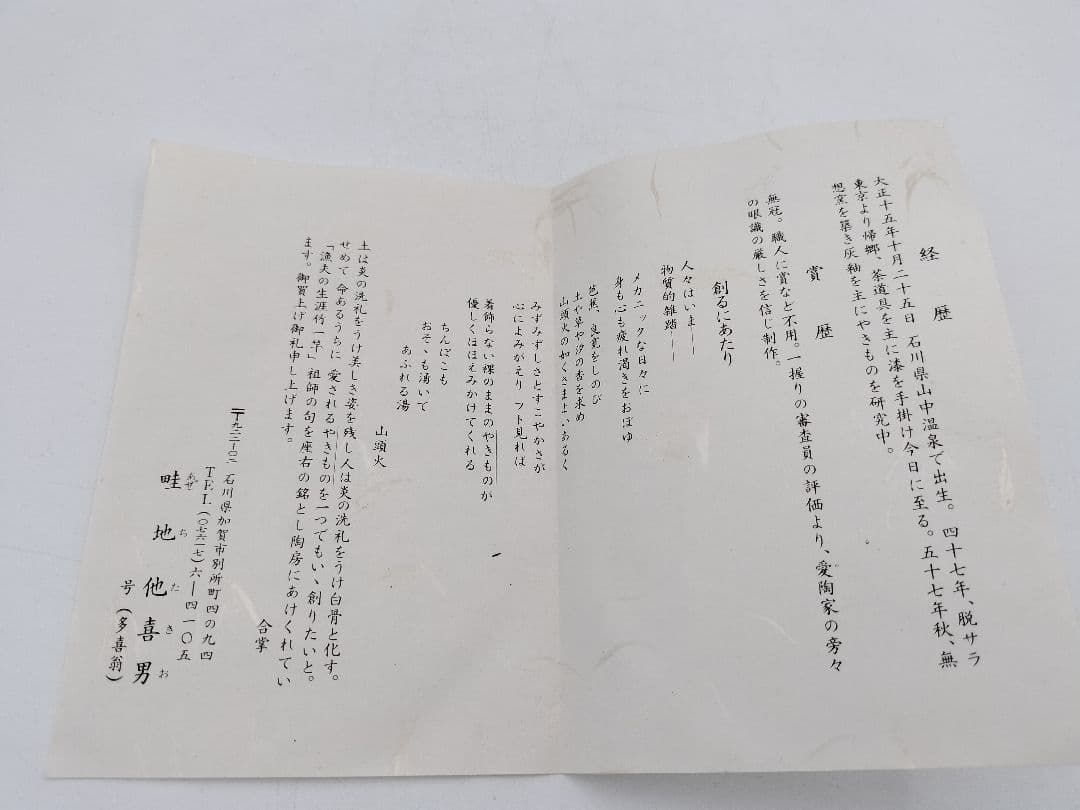 経歴
大正十五年十月二十五日 石川県山中温泉で出生。四十七年、脱サラ
東京より帰郷、茶道具を主に漆を手掛け今日に至る。五十七年秋、無
想窯を築き灰釉を主にやきものを研究中。
賞歴
無冠。職人に賞など不用。一握りの審査員の評価より、愛陶家の旁々
の眼識の厳しさを信じ制作。
創るにあたり
人々はいま──
物質的雑踏──
メカニックな日々に
身も心も疲れ渇きをおぼゆ
芭蕉、良寛をしのび
土や草や汐の香を求め
山頭火の如くさまよいあるく
みずみずしさとすこやかさが
心によみがえり フト見れば
着飾らない裸のままのやきものが
優しくほほえみかけてくれる
ちんぽこも
おそゝも湧いて
あふれる湯
山頭火
土は炎の洗礼をうけ美しき姿を残し人は炎の洗礼をうけ白骨と化す。
せめて 命あるうちに 愛されるやきものを一つでもいゝ創りたいと。
「漁夫の生涯竹一竿」祖師の句を座右の銘とし陶房にあけくれてい
ます。御買上げ御礼申し上げます。
合掌
〒九二二−〇二 石川県加賀市別所町四の九四
TEL(〇七六一七)六−四一〇五
畦地他喜男
あぜちたきお
号(多喜翁)